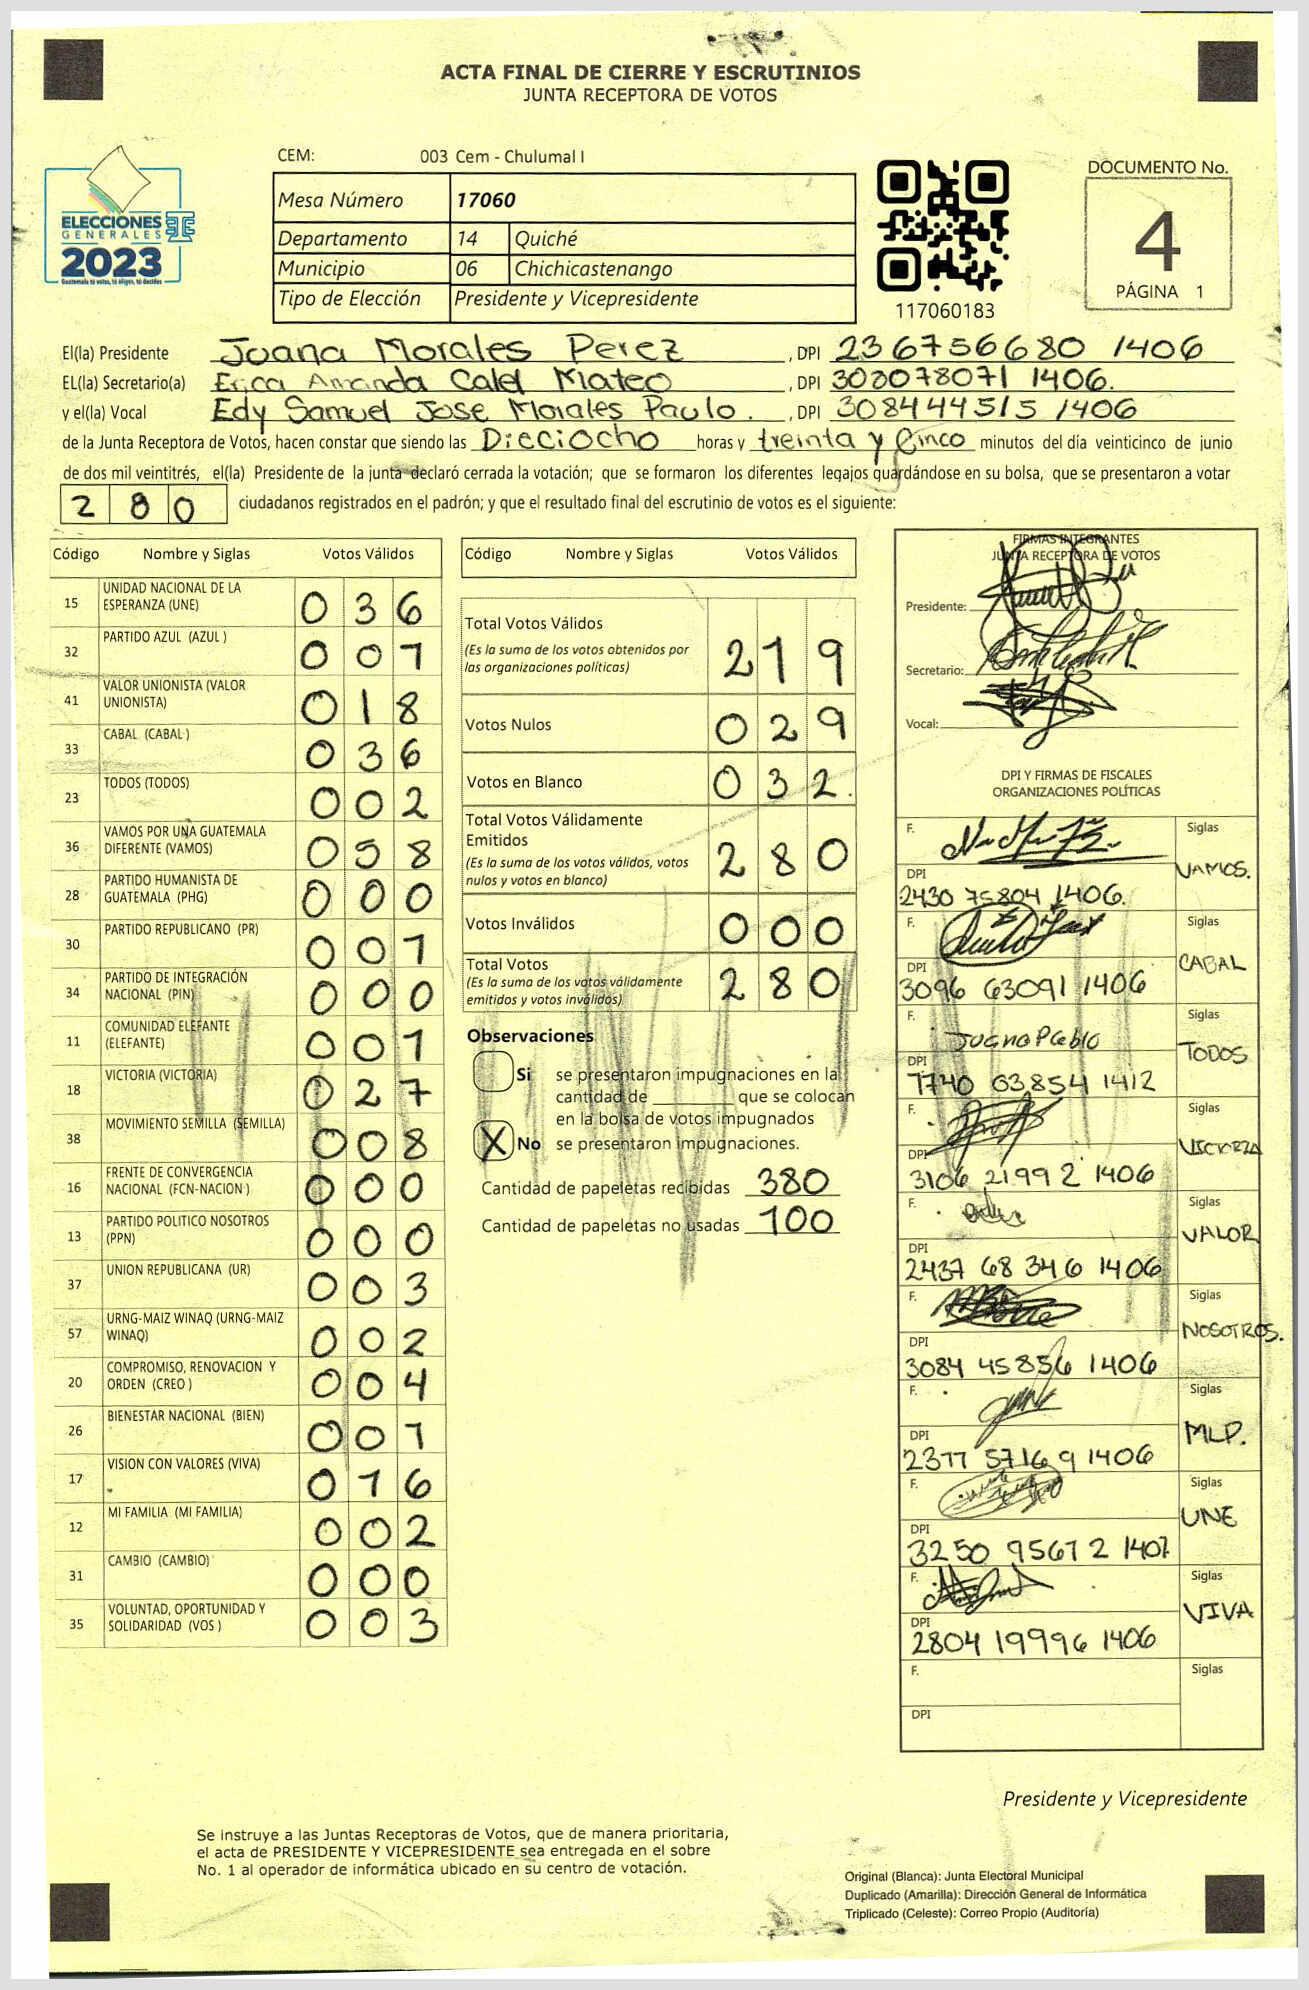 ACTA FINAL DE CIERRE Y ESCRUTINIOS
JUNTA RECEPTORA DE VOTOS
CEM: 003 Cem - Chulumal I
DOCUMENTO No.
4
PÁGINA 1
ELECCIONES
GENERALES
2023
Guatemala tú votas, tú eliges, tú decides
Mesa Número 17060
Departamento 14 Quiché
Municipio 06 Chichicastenango
Tipo de Elección Presidente y Vicepresidente
117060183
El(la) Presidente Juana Morales Perez , DPI 236756680 1406
EL(la) Secretario(a) Erica Amanda Calel Mateo , DPI 308078071 1406.
y el(la) Vocal Edy Samuel Jose Morales Paulo. , DPI 308444515 1406
de la Junta Receptora de Votos, hacen constar que siendo las Dieciocho horas y treinta y Cinco minutos del día veinticinco de junio
de dos mil veintitrés, el(la) Presidente de la junta declaró cerrada la votación; que se formaron los diferentes legajos guardándose en su bolsa, que se presentaron a votar
280 ciudadanos registrados en el padrón; y que el resultado final del escrutinio de votos es el siguiente:
Código Nombre y Siglas Votos Válidos
15 UNIDAD NACIONAL DE LA
ESPERANZA (UNE) 036
32 PARTIDO AZUL (AZUL ) 001
41 VALOR UNIONISTA (VALOR
UNIONISTA) 018
33 CABAL (CABAL ) 036
23 TODOS (TODOS) 002
36 VAMOS POR UNA GUATEMALA
DIFERENTE (VAMOS) 058
28 PARTIDO HUMANISTA DE
GUATEMALA (PHG) 000
30 PARTIDO REPUBLICANO (PR) 001
34 PARTIDO DE INTEGRACIÓN
NACIONAL (PIN) 000
11 COMUNIDAD ELEFANTE
(ELEFANTE) 001
18 VICTORIA (VICTORIA) 027
38 MOVIMIENTO SEMILLA (SEMILLA) 008
16 FRENTE DE CONVERGENCIA
NACIONAL (FCN-NACION ) 000
13 PARTIDO POLITICO NOSOTROS
(PPN) 000
37 UNION REPUBLICANA (UR) 003
57 URNG-MAIZ WINAQ (URNG-MAIZ
WINAQ) 002
20 COMPROMISO, RENOVACION Y
ORDEN (CREO ) 004
26 BIENESTAR NACIONAL (BIEN) 001
17 VISION CON VALORES (VIVA) 016
12 MI FAMILIA (MI FAMILIA) 002
31 CAMBIO (CAMBIO) 000
35 VOLUNTAD, OPORTUNIDAD Y
SOLIDARIDAD (VOS ) 003
Código Nombre y Siglas Votos Válidos
Total Votos Válidos
(Es la suma de los votos obtenidos por
las organizaciones políticas) 219
Votos Nulos 029
Votos en Blanco 032.
Total Votos Válidamente
Emitidos
(Es la suma de los votos válidos, votos
nulos y votos en blanco) 280
Votos Inválidos 000
Total Votos
(Es la suma de los votos válidamente
emitidos y votos inválidos) 280
Observaciones
Si se presentaron impugnaciones en la
cantidad de ________ que se colocan
en la bolsa de votos impugnados
X No se presentaron impugnaciones.
Cantidad de papeletas recibidas 380
Cantidad de papeletas no usadas 100
FIRMAS INTEGRANTES
JUNTA RECEPTORA DE VOTOS
Presidente:
Secretario:
Vocal:
DPI Y FIRMAS DE FISCALES
ORGANIZACIONES POLÍTICAS
F. Siglas
VAMOS.
DPI
2430 75804 1406.
F. Siglas
CABAL
DPI
3096 63091 1406
F. Siglas
Juana Pablo
TODOS
DPI
1740 03854 1412
F. Siglas
VICTORIA
DPI
3106 21992 1406
F. Siglas
VALOR
DPI
2437 68346 1406
F. Siglas
NOSOTROS.
DPI
3084 45856 1406
F. Siglas
MLP.
DPI
2377 57169 1406
F. Siglas
UNE
DPI
3250 95672 1407
F. Siglas
VIVA
DPI
2804 19996 1406
F. Siglas
DPI
Presidente y Vicepresidente
Se instruye a las Juntas Receptoras de Votos, que de manera prioritaria,
el acta de PRESIDENTE Y VICEPRESIDENTE sea entregada en el sobre
No. 1 al operador de informática ubicado en su centro de votación.
Original (Blanca): Junta Electoral Municipal
Duplicado (Amarilla): Dirección General de Informática
Triplicado (Celeste): Correo Propio (Auditoría)